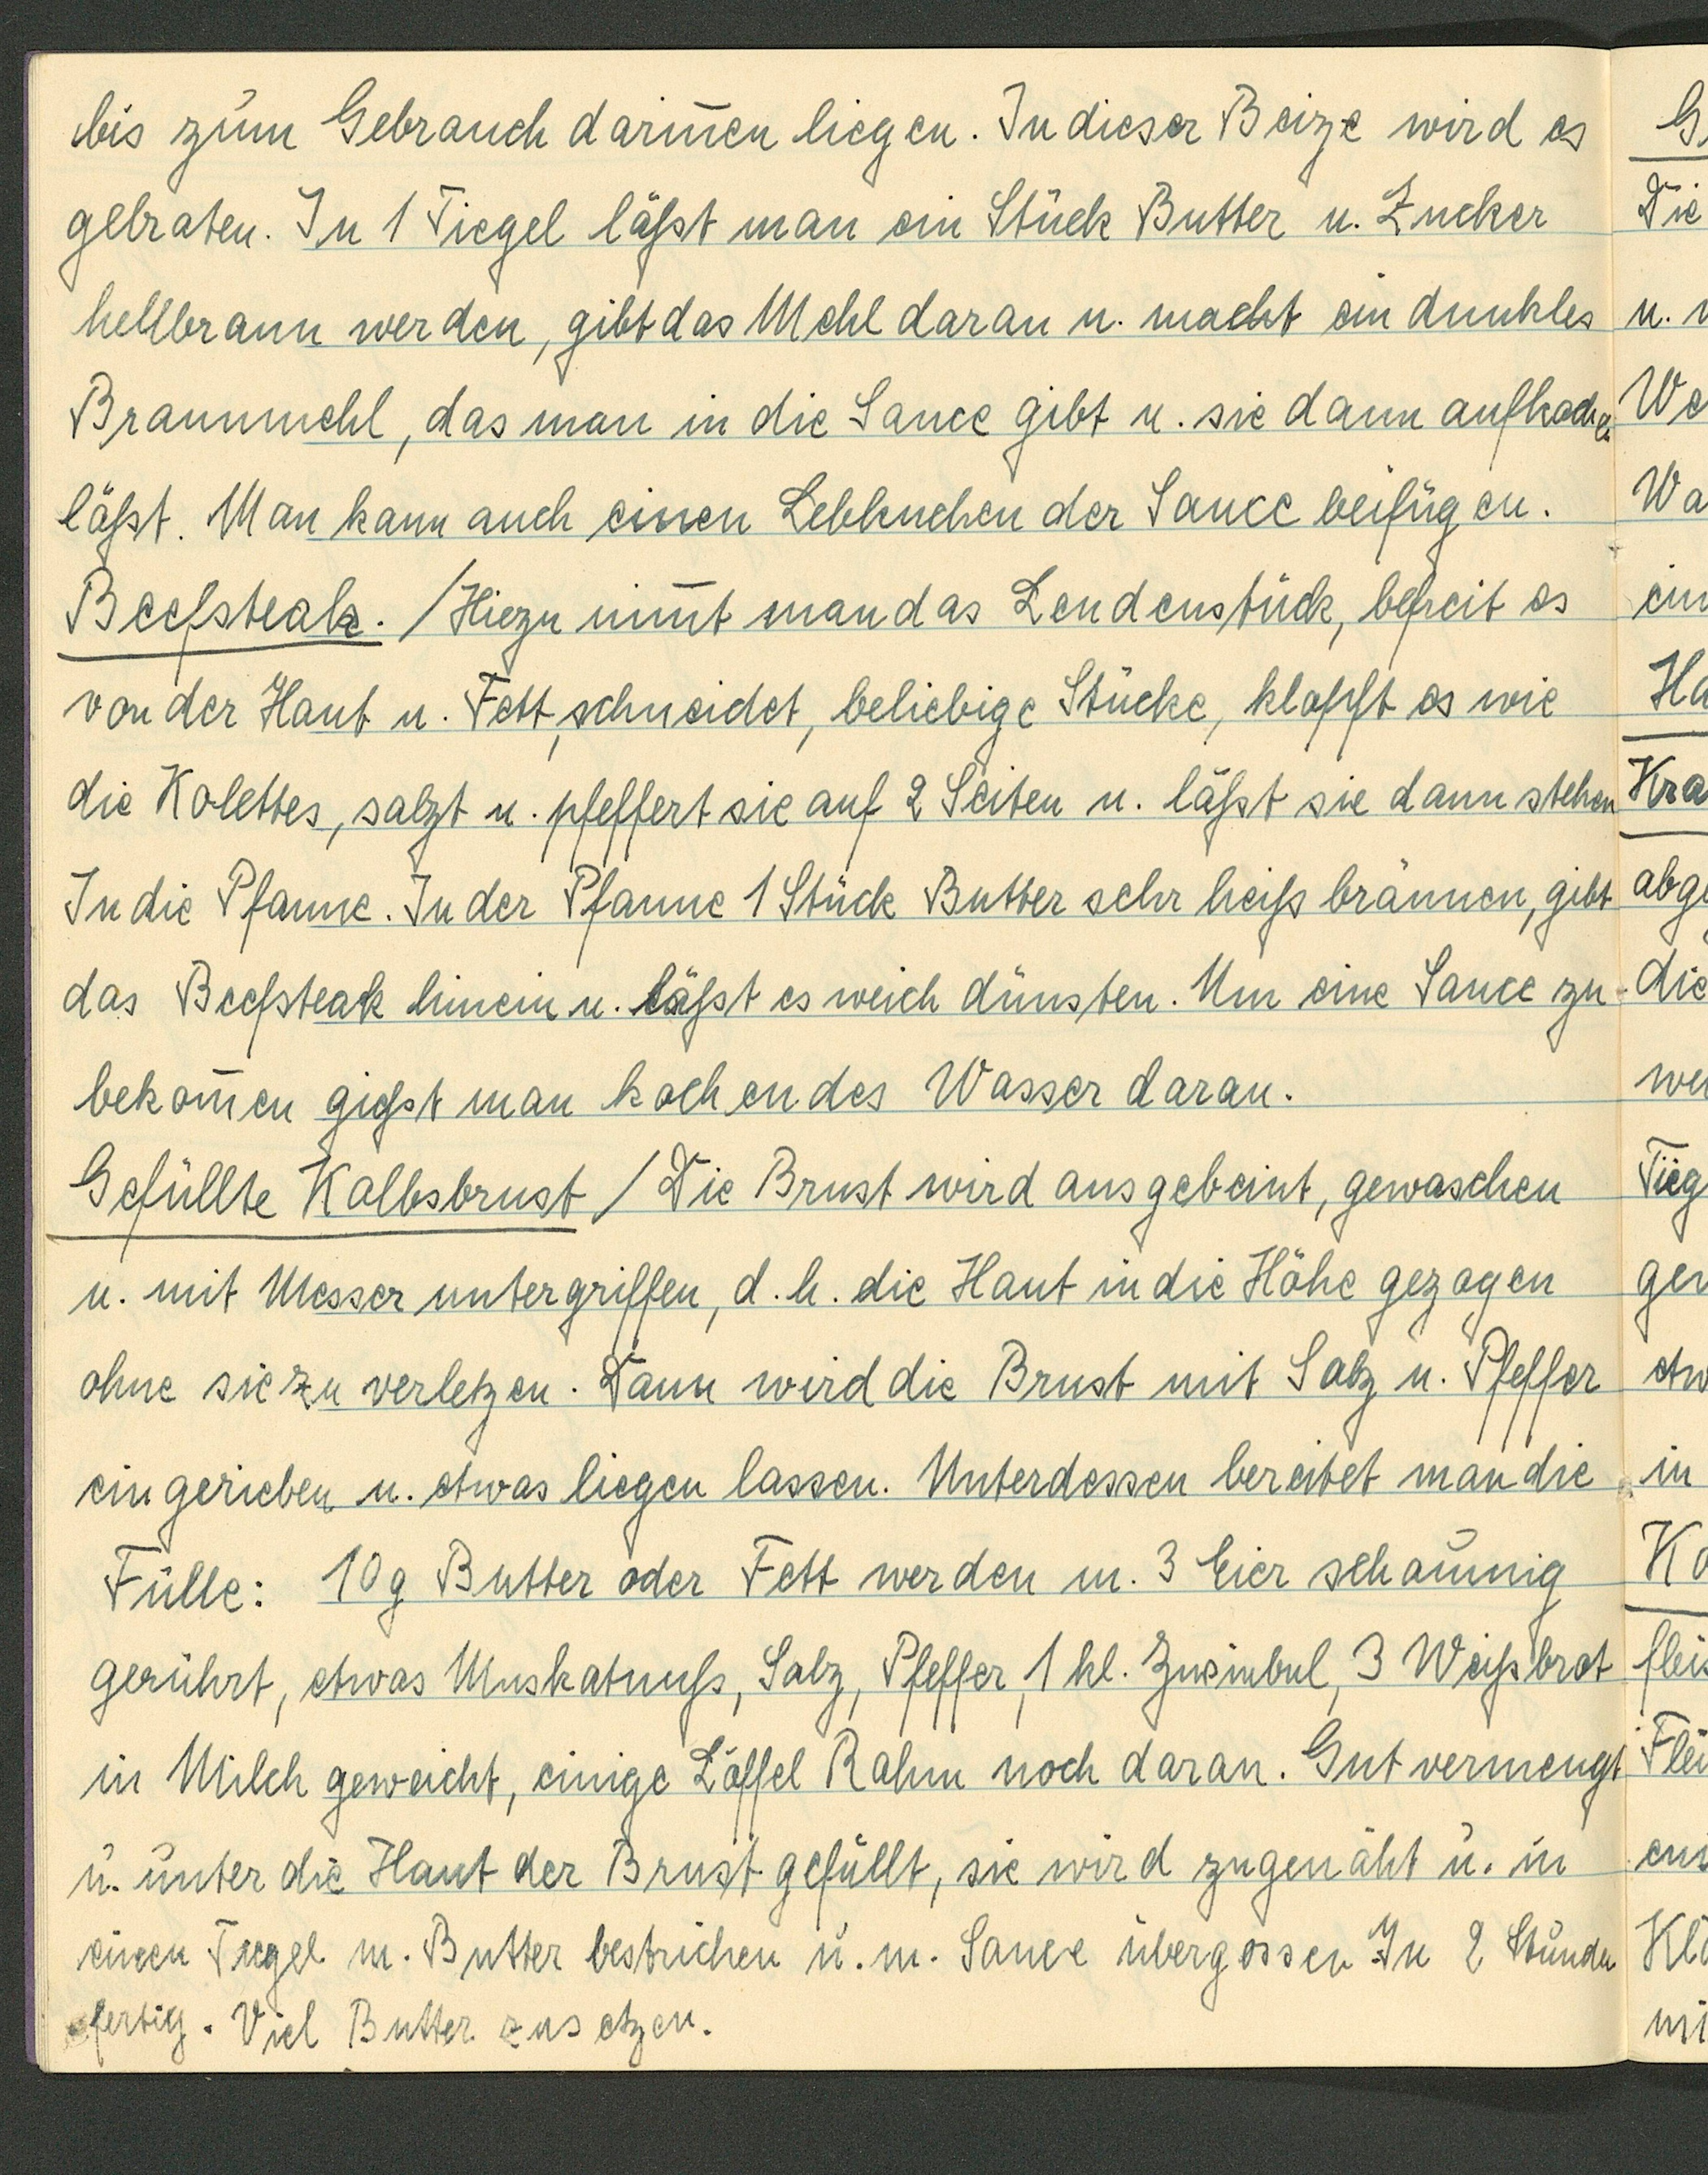 bis zum Gebrauch darin̄en liegen. In dieser Beize wird es
gebraten. In 1 Tiegel läßt man ein Stück Butter u. Zucker
hellbraun werden, gibt das Mehl daran u. macht ein dunkles
Braunmehl, das man in die Sauce gibt u. sie dann aufkochen
läßt. Man kann auch einen Lebkuchen der Sauce beifügen.
Beefsteak. / Hiezu nim̄t man das Lendenstück, befreit es
von der Haut u. Fett, schneidet, beliebige Stücke, klopft es wie
die Kolettes, salzt u. pfeffert sie auf 2 Seiten u. läßt sie dann stehen
In die Pfanne. In der Pfanne 1 Stück Butter sehr heiß bräunen, gibt
das Beefsteak hinein u. läßt es weich dünsten. Um eine Sauce zu
bekom̄en gießt man kochendes Wasser daran.
Gefüllte Kalbsbrust / Die Brust wird ausgebeint, gewaschen
u. mit Messer untergriffen, d. h. die Haut in die Höhe gezogen
ohne sie zu verletzen. Dann wird die Brust mit Salz u. Pfeffer
eingerieben u. etwas liegen lassen. Unterdessen bereitet man die
Fülle: 10g Butter oder Fett werden m. 3 Eier schaumig
gerührt, etwas Muskatnuß, Salz, Pfeffer, 1 kl. Zwimbul, 3 Weißbrot
in Milch geweicht, einige Löffel Rahm noch daran. Gut vermengt
u. unter die Haut der Brust gefüllt, sie wird zugenäht u. in
einen Tiegel m. Butter bestrichen u. m. Sauce übergossen In 2 Stunden
fertig. Viel Butter zusetzen.